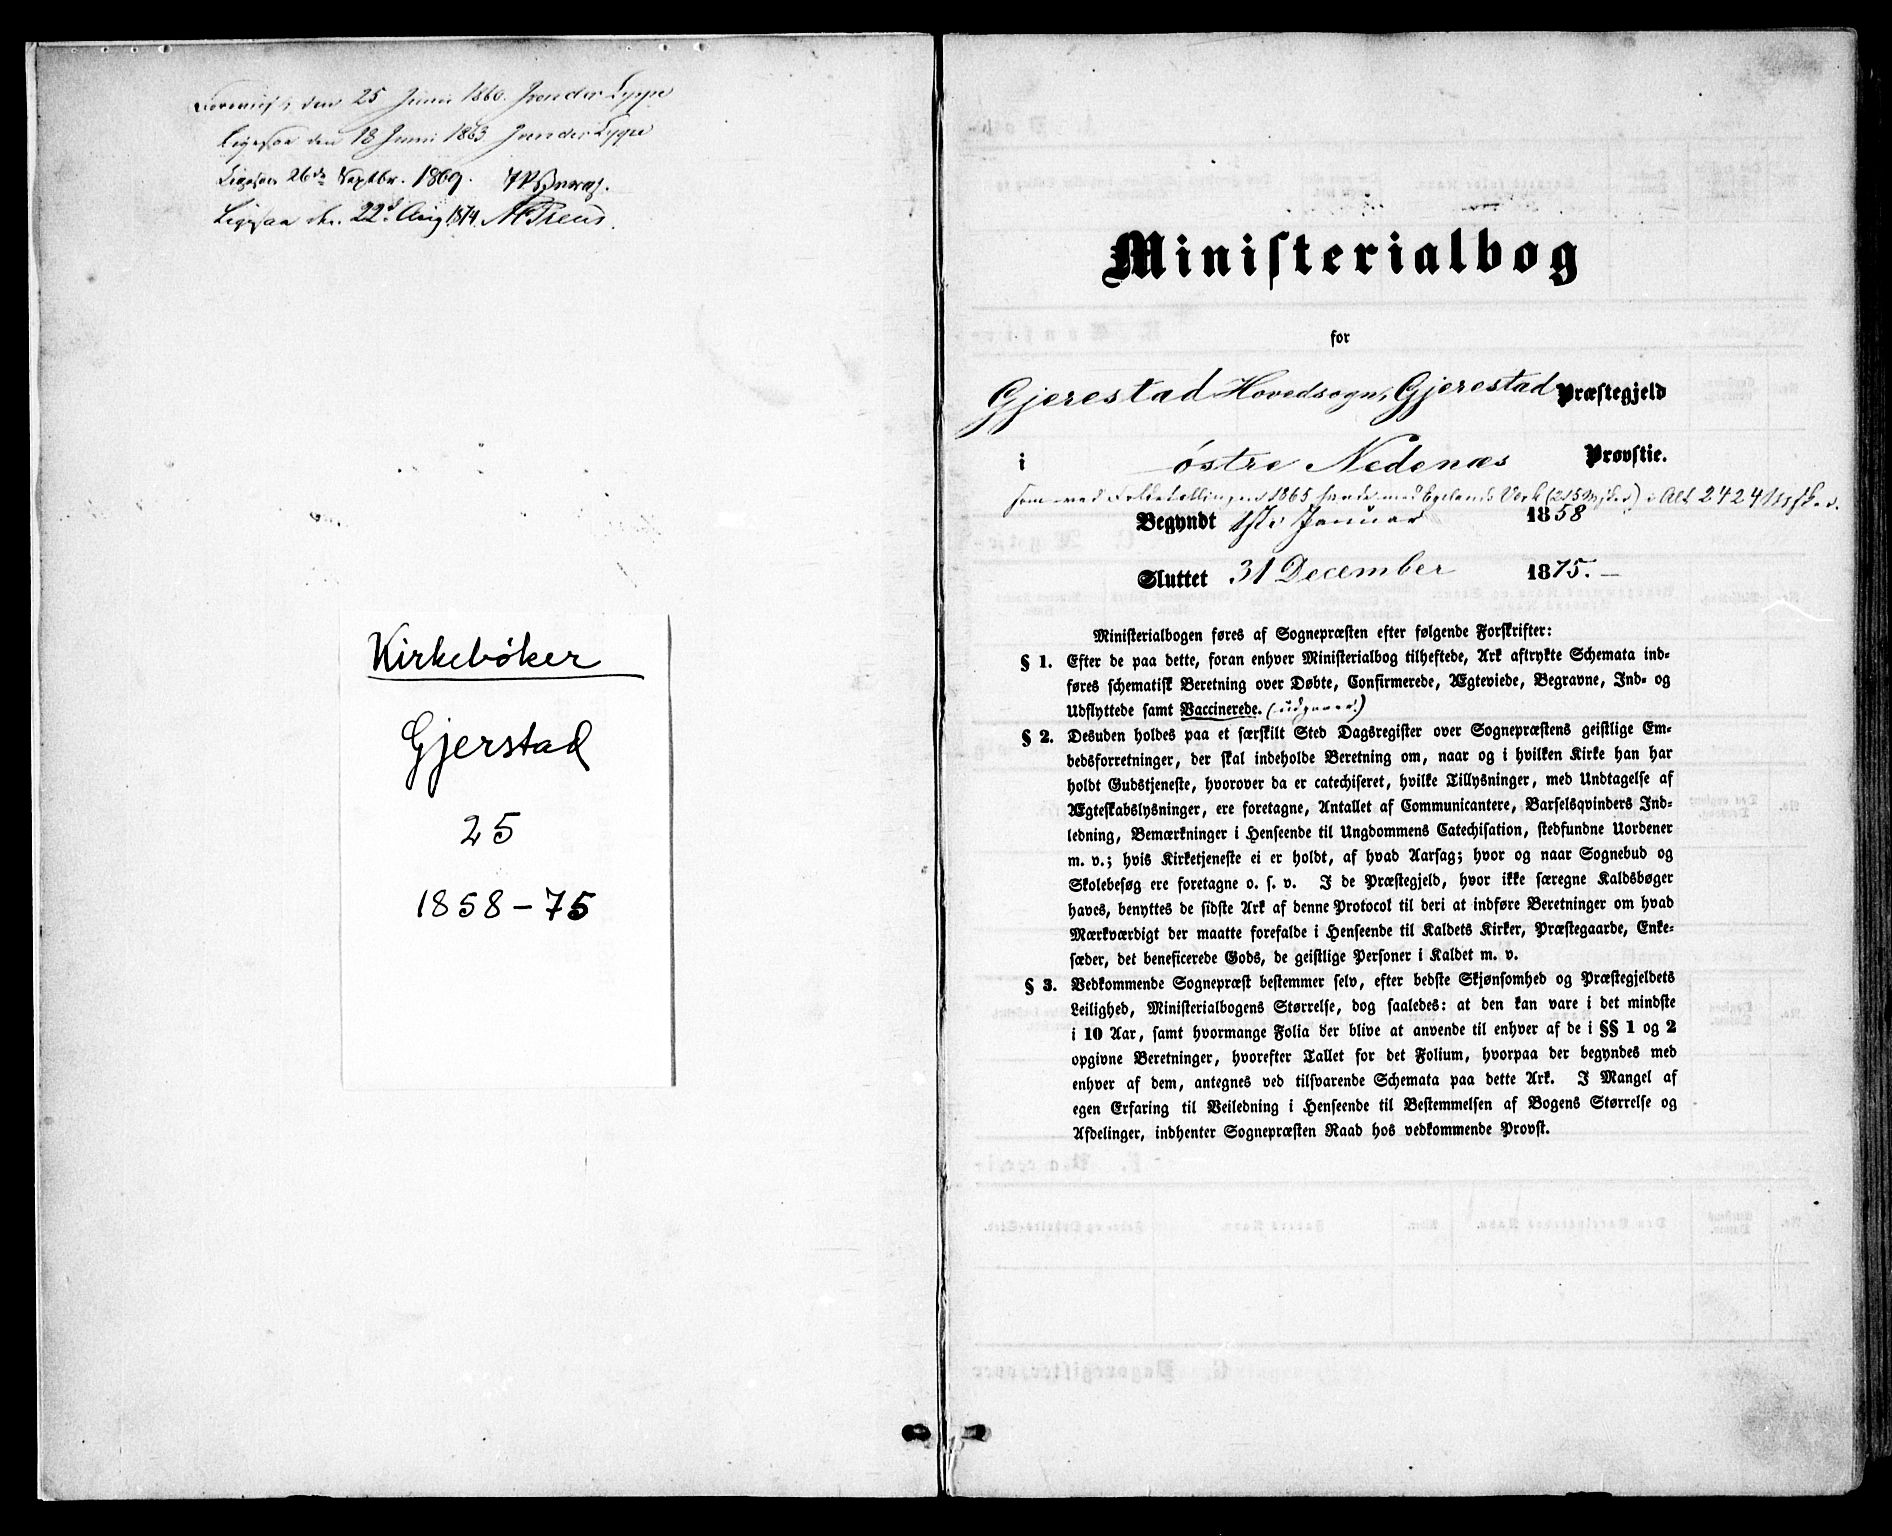 Foreviist den 25 Juni 1860. J von der Lippe
Ligesaa den 18 Juni 1863 J von der Lippe
Ligesaa 26de Septbr. 1869.
Ligesaa den 22d Aug 1874.
Kirkebøker
Gjerstad
25
1858-75
Ministerialbog
for
Gjerestad Hovedsogn, Gjerestad Præstegjeld
i østre Nedenæs Provstie.
som ved Folketællingen 1865 havde med Egelands Verk (215 Msker) i Alt 2424 Msker.
Begyndt 1ste Januar 1858
Sluttet 31 December 1875.—
Ministerialbogen føres af Sognepræsten efter følgende Forskrifter:
§ 1. Efter de paa dette, foran enhver Ministerialbog tilheftede, Ark aftrykte Schemata ind-
føres schematisk Beretning over Døbte, Confirmerede, Ægteviede, Begravne, Ind- og
Udflyttede samt Vaccinerede. (udgaaer.)
§ 2. Desuden holdes paa et særskilt Sted Dagsregister over Sognepræstens geistlige Em-
bedsforretninger, der skal indeholde Beretning om, naar og i hvilken Kirke han har
holdt Gudstjeneste, hvorover da er catechiseret, hvilke Tillysninger, med Undtagelse af
Ægteskabslysninger, ere foretagne, Antallet af Communicantere, Barselqvinders Ind-
ledning, Bemærkninger i Henseende til Ungdommens Catechisation, stedfundne Uordener
m. v.; hvis Kirketjeneste ei er holdt, af hvad Aarsag; hvor og naar Sognebud og
Skolebesøg ere foretagne o. s. v. I de Præstegjeld, hvor ikke særegne Kaldsbøger
haves, benyttes de sidste Ark af denne Protocol til deri at indføre Beretninger om hvad
Mærkværdigt der maatte forefalde i Henseende til Kaldets Kirker, Præstegaarde, Enke-
sæder, det beneficerede Gods, de geistlige Personer i Kaldet m. v.
§ 3. Vedkommende Sognepræst bestemmer selv, efter bedste Skjønsomhed og Præstegjeldets
Leilighed, Ministerialbogens Størrelse, dog saaledes: at den kan vare i det mindste
i 10 Aar, samt hvormange Folia der blive at anvende til enhver af de i §§ 1 og 2
opgivne Beretninger, hvorefter Tallet for det Folium, hvorpaa der begyndes med
enhver af dem, antegnes ved tilsvarende Schemata paa dette Ark. I Mangel af
egen Erfaring til Veiledning i Henseende til Bestemmelsen af Bogens Størrelse og
Afdelinger, indhenter Sognepræsten Raad hos vedkommende Provst.